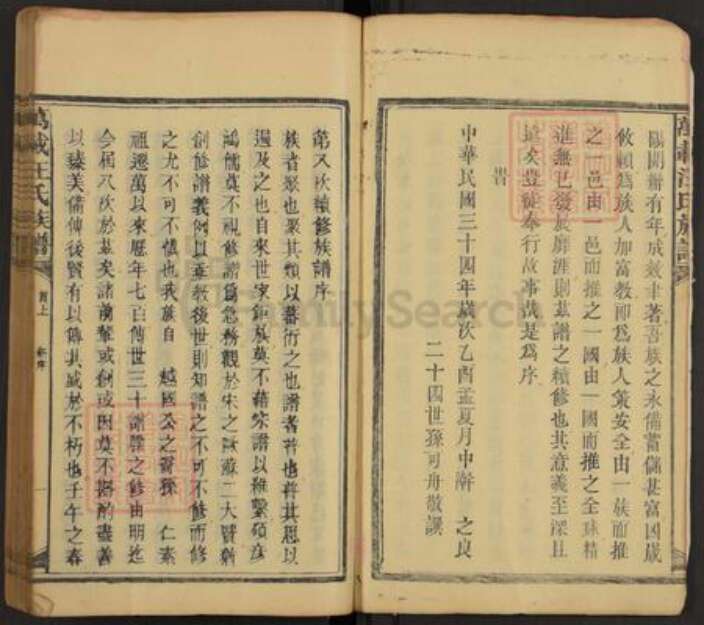 陽開辦有年成效聿著吾族之永備蓄儲甚富因歲
攸賴爲族人加富教即爲族人策安全由一族而推
之一邑由一邑而推之一國由一國而推之全球精
進無已發展靡涯則茲譜之續修也其意義至深且
遠矣豈徒奉行故事哉是爲序
旹
中華民國三十四年歲次乙酉孟夏月中澣 之良
二十四世孫可舟敬譔
萬載汪氏族譜
第八次續修族譜序
族者聚也聚其類以蕃衍之也譜者普也普其思以
遍及之也自來世家鉅族莫不藉宗譜以維繫碩彥
鴻儒莫不視修譜爲急務觀於宋之歐蘇二大賢剏
創修譜義例以垂教後世則知譜之不可不修而修
之尤不可不慎也我族自 越國公之裔孫 仁素
祖遷萬以來歷年七百傳世三十譜牒之修由明迄
今屆八次於茲矣諸前輩或創或因莫不斟酌盡善
以臻美備俾後賢有以傳其盛於不朽也壬午之春
萬載汪氏族譜
首上
新序
一
FamilySearch